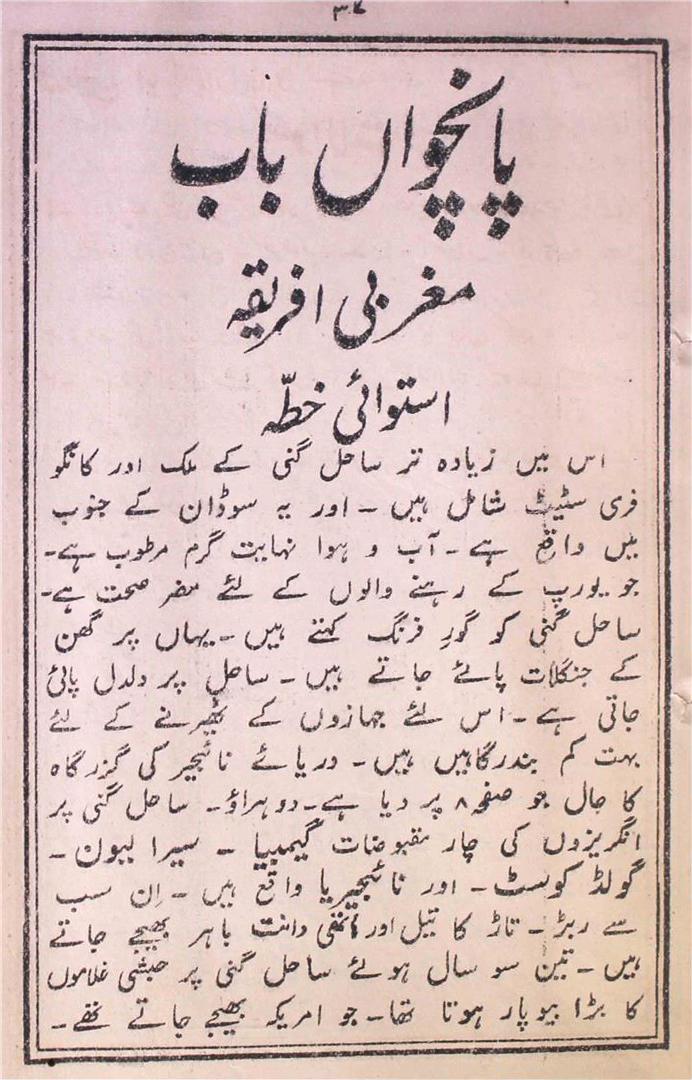 ۳۷
پانچواں باب
مغربی افریقہ
استوائی خطّہ
اس میں زیادہ تر ساحل گنی کے ملک اور کانگو
فری سٹیٹ شامل ہیں ۔ اور یہ سوڈان کے جنوب
میں واقع ہے ۔ آب و ہوا نہایت گرم مرطوب ہے ۔
جو یورپ کے رہنے والوں کے لئے مضر صحت ہے ۔
ساحل گنی کو گورِ فرنگ کہتے ہیں ۔ یہاں پر گھن
کے جنگلات پائے جاتے ہیں ۔ ساحل پر دلدل پائی
جاتی ہے ۔ اس لئے جہازوں کے ٹھہرنے کے لئے
بہت کم بندرگاہیں ہیں ۔ دریائے نائیجیر کی گزرگاہ
کا حال جو صفحہ ۸ پر دیا ہے ۔ دوہراؤ ۔ ساحل گنی پر
انگریزوں کی چار مقبوضات گیمبیا ۔ سیرا لیون ۔
گولڈ کوسٹ ۔ اور نائیجیریا واقع ہیں ۔ اِن سب
سے ربڑ ۔ تاڑ کا تیل اور ہاتھی دانت باہر بھیجے جاتے
ہیں ۔ تین سو سال ہوئے ساحل گنی پر حبشی غلاموں
کا بڑا بیوپار ہوتا تھا ۔ جو امریکہ بھیجے جاتے تھے ۔